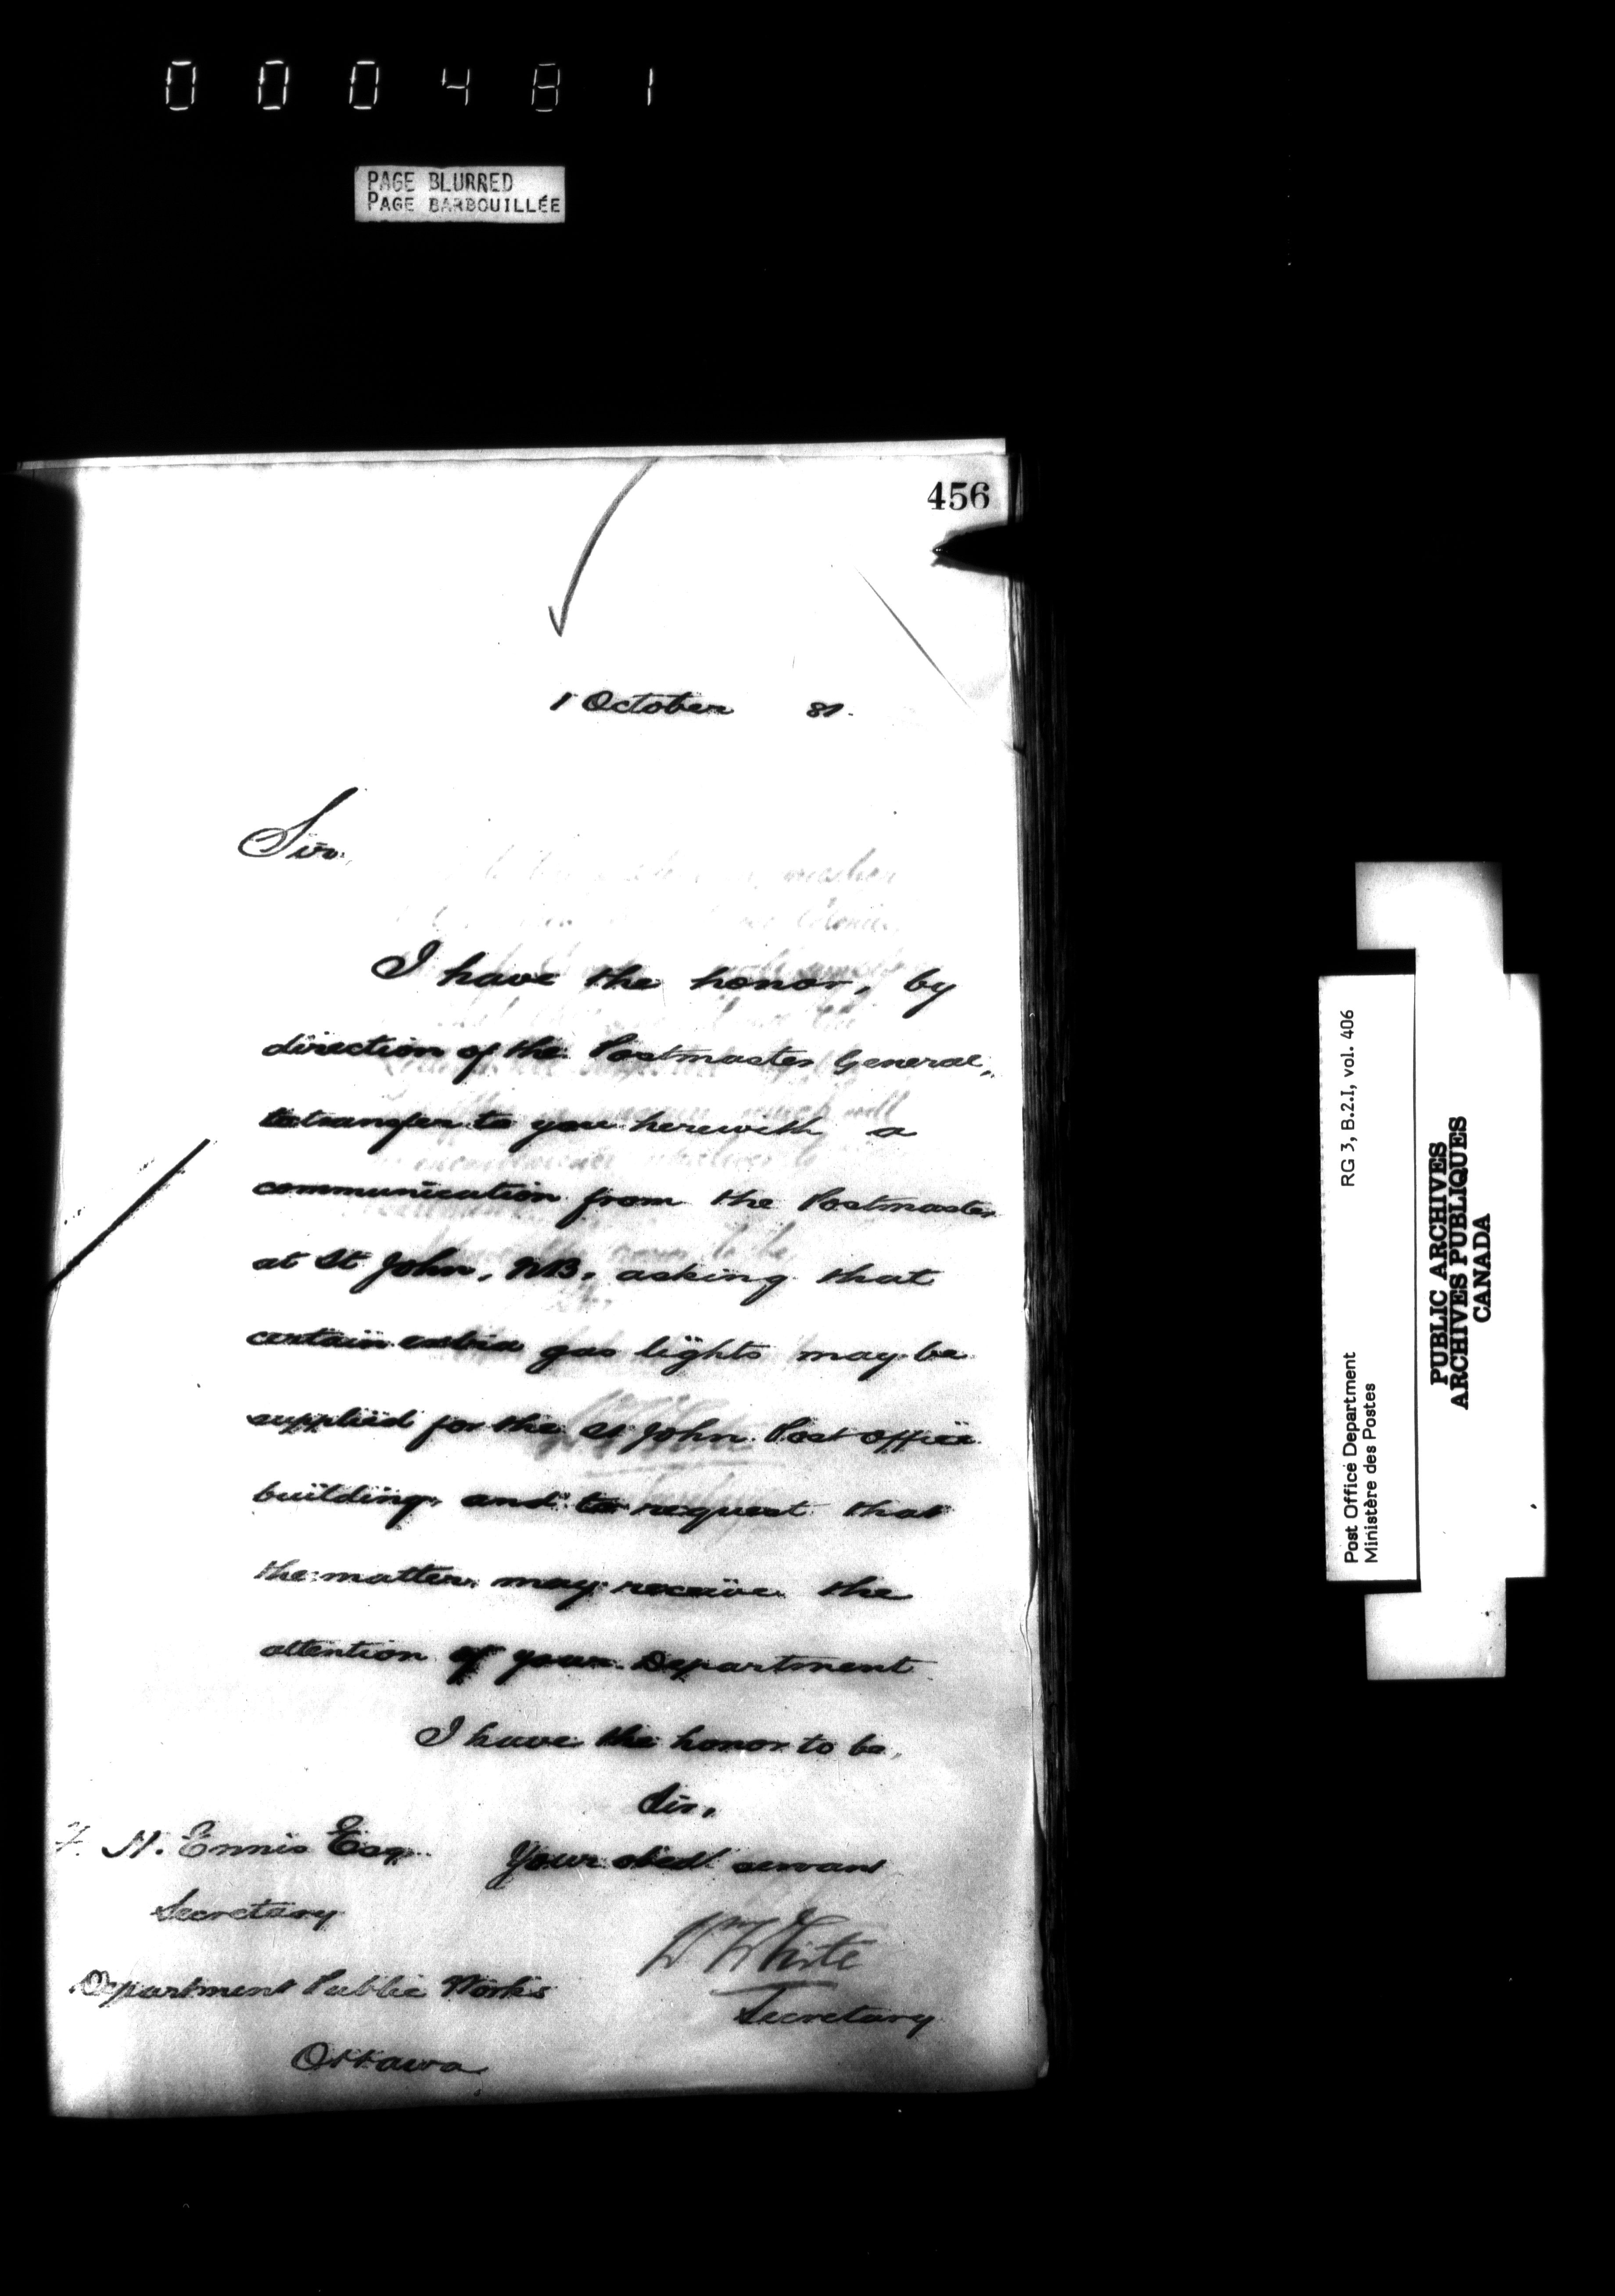 000481
PAGE BLURRED
PAGE BARBOUILLÉE
456
1 October 81.
Sir,
I have the honor, by
direction of the Postmaster General,
to transfer to you herewith a
communication from the Postmaster
at St John, NB, asking that
certain extra gas lights may be
supplied for the St John Post Office
building, and to request that
the matter may receive the
attention of your Department
I have the honor to be,
Sir,
Your obedt servant
Wm White
Secretary
F. H. Ennis Esq
Secretary
Department Public Works
Ottawa
Post Office Department RG 3, B.2.I, vol. 406
Ministère des Postes
PUBLIC ARCHIVES
ARCHIVES PUBLIQUES
CANADA